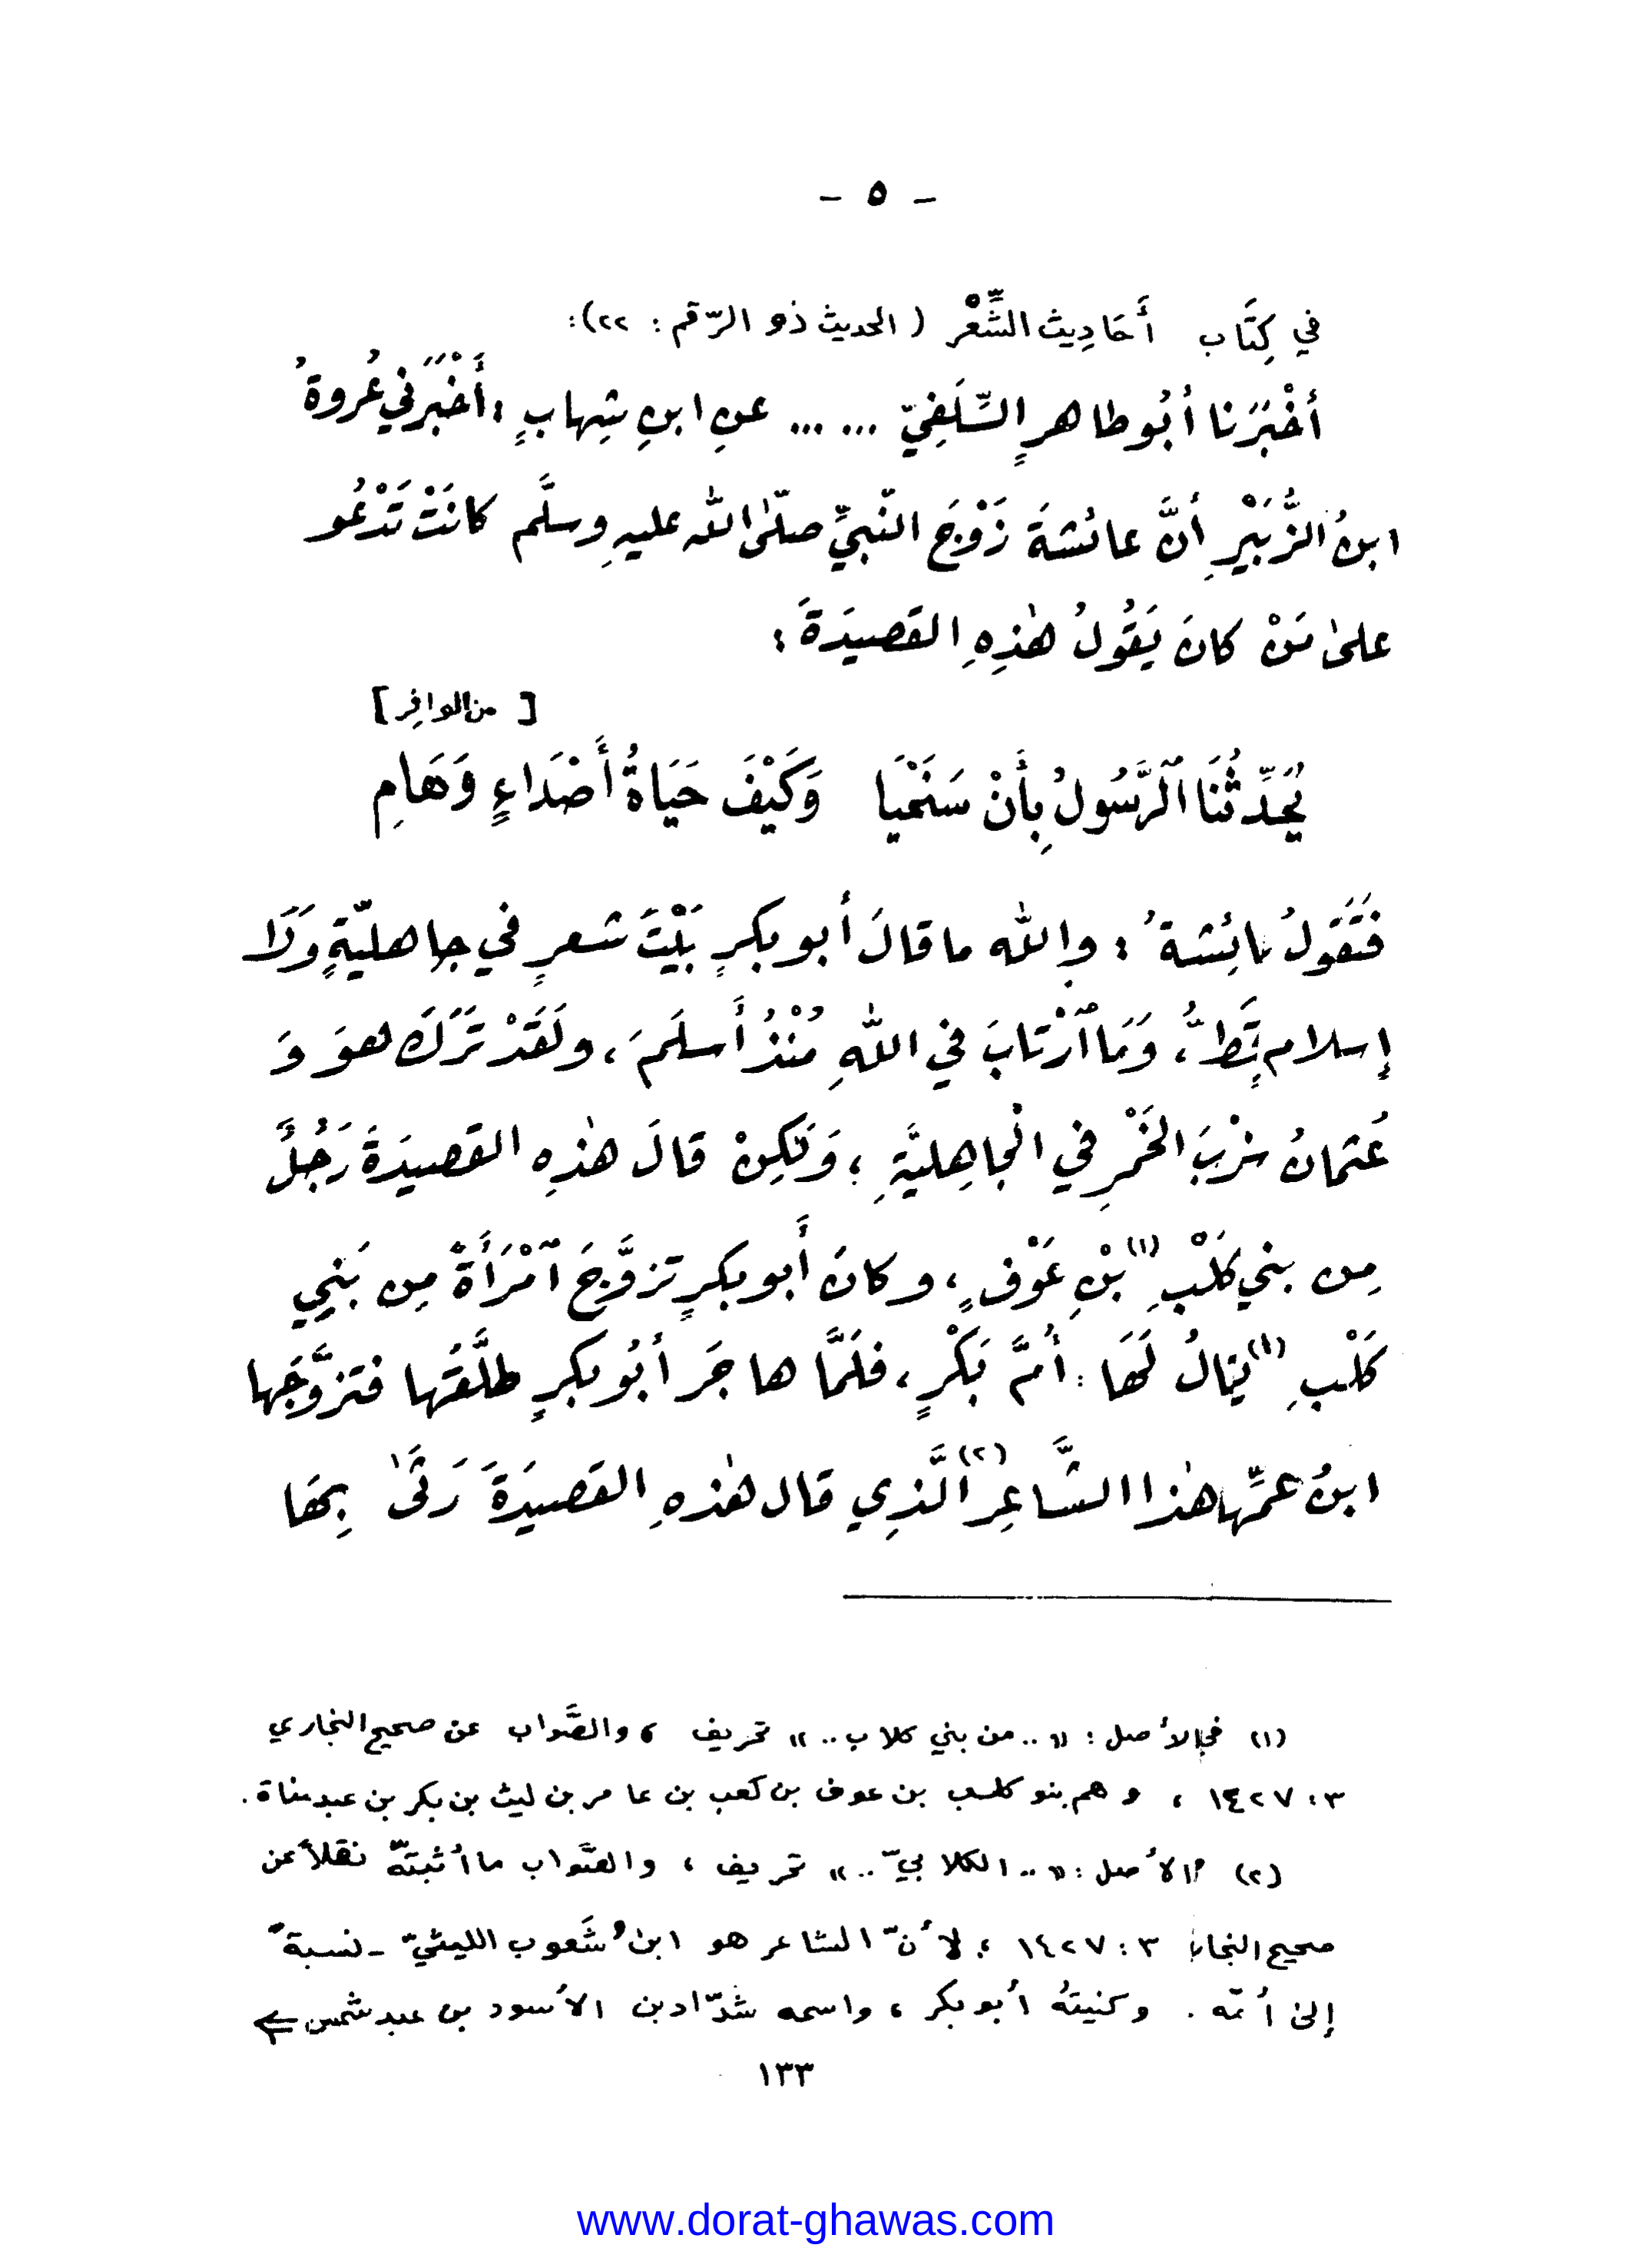 - ٥ -
في كِتَاب أَحَادِيث الشِّعْر ( الحديث ذو الرّقم : ٢٢):
أخْبَرَنا أبُو طاهرٍ السِّلَفِيّ ... ... عنِ ابنِ شِهابٍ : أَخْبَرَني عُروةُ
ابنُ الزُّبَيْرِ أنَّ عائشةَ زَوْجَ النّبيِّ صلّى الله عليهِ وسلَّم كانَتْ تَدْعُو
علىٰ مَنْ كانَ يَقُولُ هٰذِهِ القصيدَةَ :
[ من الوافِر ]
يُحَدِّثُنَا ٱلرَّسُولُ بِأَنْ سَنَحْيَا وَكَيْفَ حَيَاةُ أَصْدَاءٍ وَهَامِ
فَتَقولُ عائِشةُ : واللّٰه ما قالَ أبو بكرٍ بَيْتَ شعرٍ في جاهليّةٍ وَلَا
إسلام قَطُّ ، وَمَا ٱرْتابَ في اللّٰهِ مُنْذُ أَسلَمَ ، ولَقَدْ تَرَكَ هوَ وَ
عُثمانُ شرْبَ الخَمْرِ في الْجاهِليَّةِ ؛ وَلكِنْ قالَ هٰذِه القصيدَةَ رَجُلٌ
مِن بني كَلْبِ (١) بْنِ عَوْفٍ ، وكانَ أَبو بكرٍ تزوَّجَ ٱمْرَأَةً مِن بَنِي
كَلْبِ (١) يقالُ لَهَا : أُمَّ بَكْرٍ ، فلَمَّا هاجَر أبُو بكرٍ طلَّقَها فتزوَّجَها
ابنُ عمِّها هٰذا الشَّاعِرُ (٢) الَّذِي قال هٰذهِ القصيدَةَ رَثَىٰ بِهَا
(١) في الأصل : « .. من بني كلاب .. » تحريف ، والصَّواب عن صحيح البخاري
٣ : ١٤٢٧ ، وهم بنو كلب بن عوف بن كعب بن عامر بن ليث بن بكر بن عبد مناة .
(٢) الأصل : « .. الكلابيّ .. » تحريف ، والصَّواب ما أثبتّه نقلاً عن
صحيح البخاري ٣ : ١٤٢٧ ؛ لأنّ الشاعر هو ابنُ شَعوب الليثيّ - نسبةً
إلى أمّه . وكنيتهُ أبو بكر ، واسمه شدّاد بن الأسود بن عبد شمس ⇐
١٣٣
www.dorat-ghawas.com